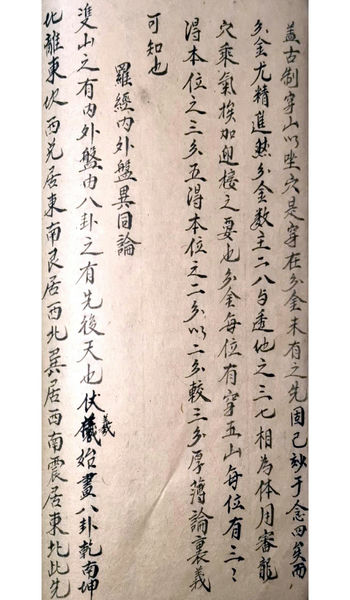 蓋古制穿山以坐穴是穿在分金未有之先固已妙于念四矣而
分金尤精進然分金数主二八与透地之三七相為体用審龍
穴乘氣挨加迎接之要也分金每位有穿五山每位有三〻
得本位之三分五得本位之二分以二分較三分厚薄論裏義
可知也
羅經內外盤異同論
雙山之有內外盤由八卦之有先後天也伏羲始畫八卦乾南坤
北離東坎西兑居東南艮居西北巽居西南震居東北此先